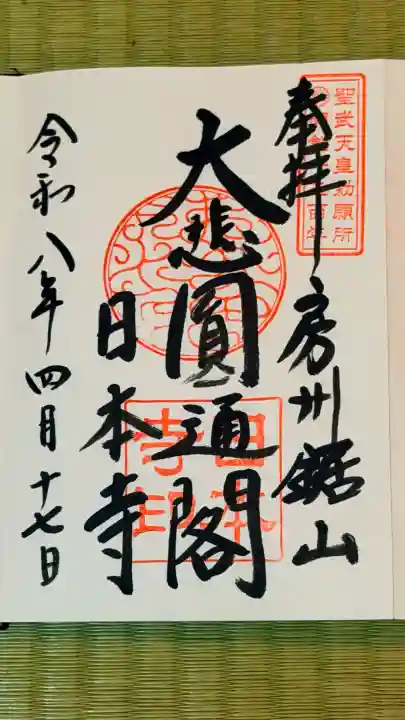 聖武天皇勅願所
奉拝
房州鋸山
大悲圓通閣
日本寺
日本寺印
令和八年四月十七日